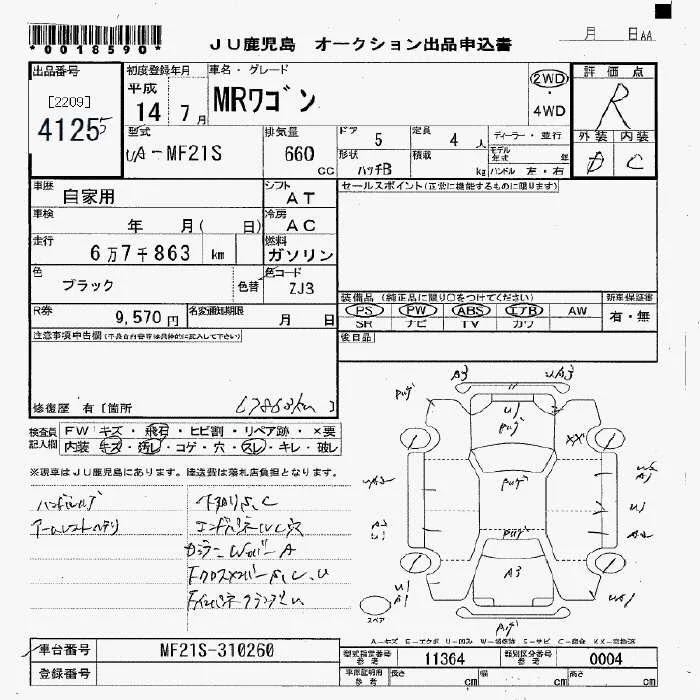 *0018590*
JU鹿児島 オークション出品申込書
月 日AA
出品番号 初度登録年月 車名・グレード 評価点
[2209]
41255
平成
14 7月
MRワゴン
2WD
・
4WD
R
外装 内装
D C
型式 排気量 ドア 5 定員 4人 ディーラー・並行
UA-MF21S 660 CC
形状 ハッチB 積載 kg
モデル年式 年
ハンドル 左・右
車歴 自家用 シフト AT
セールスポイント(正常に機能するものに限ります)
車検 年 月( 日) 冷房 AC
走行 6万7千863 km 燃料 ガソリン
色 ブラック 色替 色コード ZJ3
装備品 (純正品に限り〇をつけてください) 新車保証書
PS PW ABS エアB AW 有・無
SR ナビ TV カワ
R券 9,570円 名変通知期限 月 日
後日品
注意事項申告欄(不具合内容等は具体的に記入して下さい)
修復歴 有 [箇所 67863km ]
検査員記入欄
FW キズ・飛石・ヒビ割・リペア跡・×要
内装 キズ・汚レ・コゲ・穴・スレ・キレ・破レ
※現車はJU鹿児島にあります。陸送費は落札店負担となります。
A3
XX
A3
スペア
A-キズ E-エクボ U-凹み W-補修跡 S-サビ C-腐食 XX-交換済
車台番号 MF21S-310260
登録番号
型式指定番号 参考 11364 類別区分番号 参考 0004
車庫証明用 参考 長さ cm 幅 cm 高さ cm